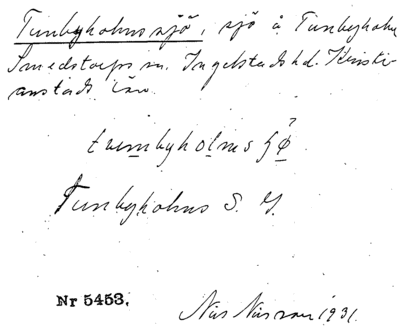 Tunbyholmssjö, sjö å Tunbyholm
Smedstorps sn. Ingelstads hd. Kristi-
anstads län.
Tunbyholms S. G.
Nr 5453.
Nils Nilsson 1931.